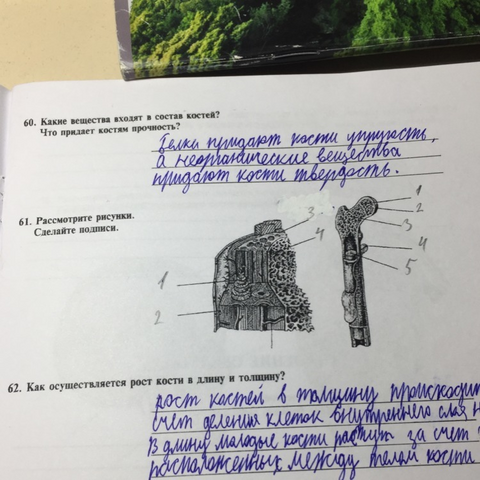 60. Какие вещества входят в состав костей?
Что придает костям прочность?
Белки придают кости упругость,
а неорганические вещества
придают кости твердость.
61. Рассмотрите рисунки.
Сделайте подписи.
3
4
1
2
1
2
3
4
5
62. Как осуществляется рост кости в длину и толщину?
рост костей в толщину происходит
счет деления клеток внутреннего слоя
В длину молодые кости растут за счет
расположенных между телом кости